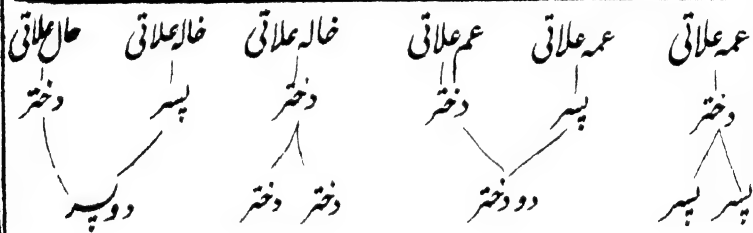 عمہ علاتی عمہ علاتی عم علاتی خالہ علاتی خالہ علاتی خال علاتی
دختر پسر دختر دختر پسر دختر
پسر پسر دو دختر دختر دختر دو پسر